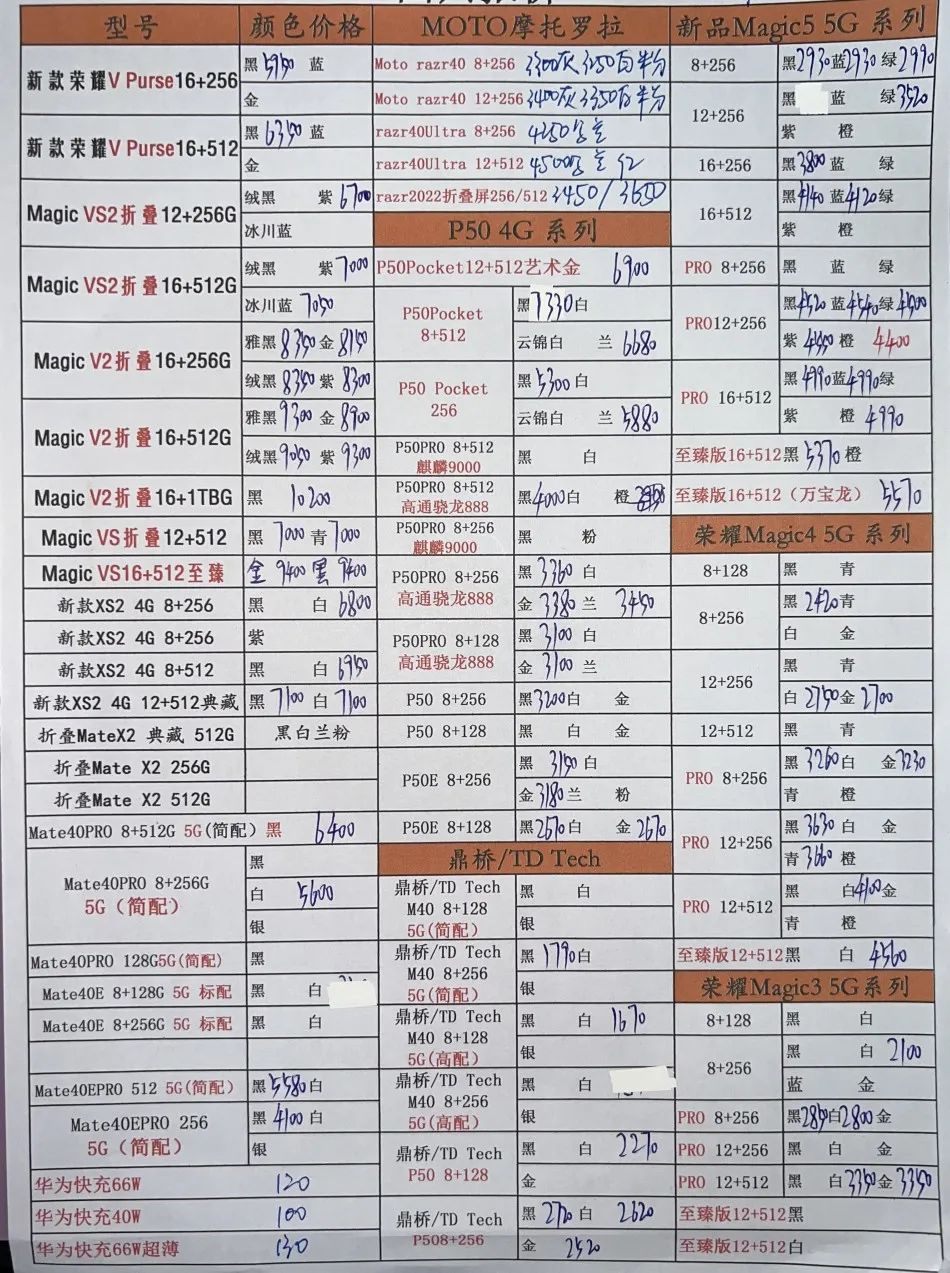 型号 颜色价格
新款荣耀V Purse16+256 黑 5950 蓝
金
新款荣耀V Purse16+512 黑 6350 蓝
金
Magic VS2折叠12+256G 绒黑 紫 6700
冰川蓝
Magic VS2折叠16+512G 绒黑 紫 7000
冰川蓝 7050
Magic V2折叠16+256G 雅黑 8350 金 8150
绒黑 8350 紫 8300
Magic V2折叠16+512G 雅黑 9300 金 8900
绒黑 9050 紫 9300
Magic V2折叠16+1TBG 黑 10200
Magic VS折叠12+512 黑 7000 青 7000
Magic VS16+512至臻 金 9400 黑 9400
新款XS2 4G 8+256 黑 白 6800
新款XS2 4G 8+256 紫
新款XS2 4G 8+512 黑 白 6950
新款XS2 4G 12+512典藏 黑 7100 白 7100
折叠MateX2 典藏 512G 黑白兰粉
折叠Mate X2 256G
折叠Mate X2 512G
Mate40PRO 8+512G 5G(简配) 黑 6400
Mate40PRO 8+256G
5G（简配）
黑
白 5600
银
Mate40PRO 128G5G(简配) 黑
Mate40E 8+128G 5G 标配 黑 白
Mate40E 8+256G 5G 标配 黑 白
Mate40EPRO 512 5G(简配) 黑 5580 白
Mate40EPRO 256
5G（简配）
黑 4100 白
银
华为快充66W 120
华为快充40W 100
华为快充66W超薄 130
MOTO摩托罗拉
Moto razr40 8+256 3300灰 3250白 半分
Moto razr40 12+256 3400灰 3350白 半分
razr40Ultra 8+256 4250
razr40Ultra 12+512 4500 红
razr2022折叠屏256/512 3450/3650
P50 4G 系列
P50Pocket12+512艺术金 6900
P50Pocket
8+512
黑 7330 白
云锦白 兰 6680
P50 Pocket
256
黑 5300 白
云锦白 兰 5880
P50PRO 8+512
麒麟9000
黑 白
P50PRO 8+512
高通骁龙888
黑 4000 白 橙
P50PRO 8+256
麒麟9000
黑 粉
P50PRO 8+256
高通骁龙888
黑 3360 白
金 3380 兰 3450
P50PRO 8+128
高通骁龙888
黑 3100 白
金 3100 兰
P50 8+256 黑 3200 白 金
P50 8+128 黑 白 金
P50E 8+256 黑 3150 白
金 3180 兰 粉
P50E 8+128 黑 2670 白 金 2670
鼎桥/TD Tech
鼎桥/TD Tech
M40 8+128
5G(简配)
黑 白
银
鼎桥/TD Tech
M40 8+256
5G(简配)
黑 1790 白
银
鼎桥/TD Tech
M40 8+128
5G(高配)
黑 白 1670
银
鼎桥/TD Tech
M40 8+256
5G(高配)
黑 白
银
鼎桥/TD Tech
P50 8+128
黑 白 2270
金
鼎桥/TD Tech
P508+256
黑 2720 白 2620
金 2520
新品Magic5 5G 系列
8+256 黑 2930 蓝 2930 绿 2990
12+256 黑 蓝 绿 3520
紫 橙
16+256 黑 3800 蓝 绿
16+512 黑 4140 蓝 4120 绿
紫 橙
PRO 8+256 黑 蓝 绿
PRO12+256 黑 4520 蓝 4540 绿 4500
紫 4450 橙 4400
PRO 16+512 黑 4990 蓝 4990 绿
紫 橙 4990
至臻版16+512 黑 5370 橙
至臻版16+512（万宝龙） 5570
荣耀Magic4 5G 系列
8+128 黑 青
8+256 黑 2420 青
白 金
12+256 黑 青
白 2750 金 2700
12+512 黑 青
PRO 8+256 黑 3260 白 金 3230
青 橙
PRO 12+256 黑 3630 白 金
青 3660 橙
PRO 12+512 黑 白 4100 金
青 橙
至臻版12+512 黑 白 4560
荣耀Magic3 5G系列
8+128 黑 白
8+256 黑 白 2100
蓝 金
PRO 8+256 黑 2850 白 2800 金
PRO 12+256 黑 白 金
PRO 12+512 黑 白 3350 金 3350
至臻版12+512黑
至臻版12+512白